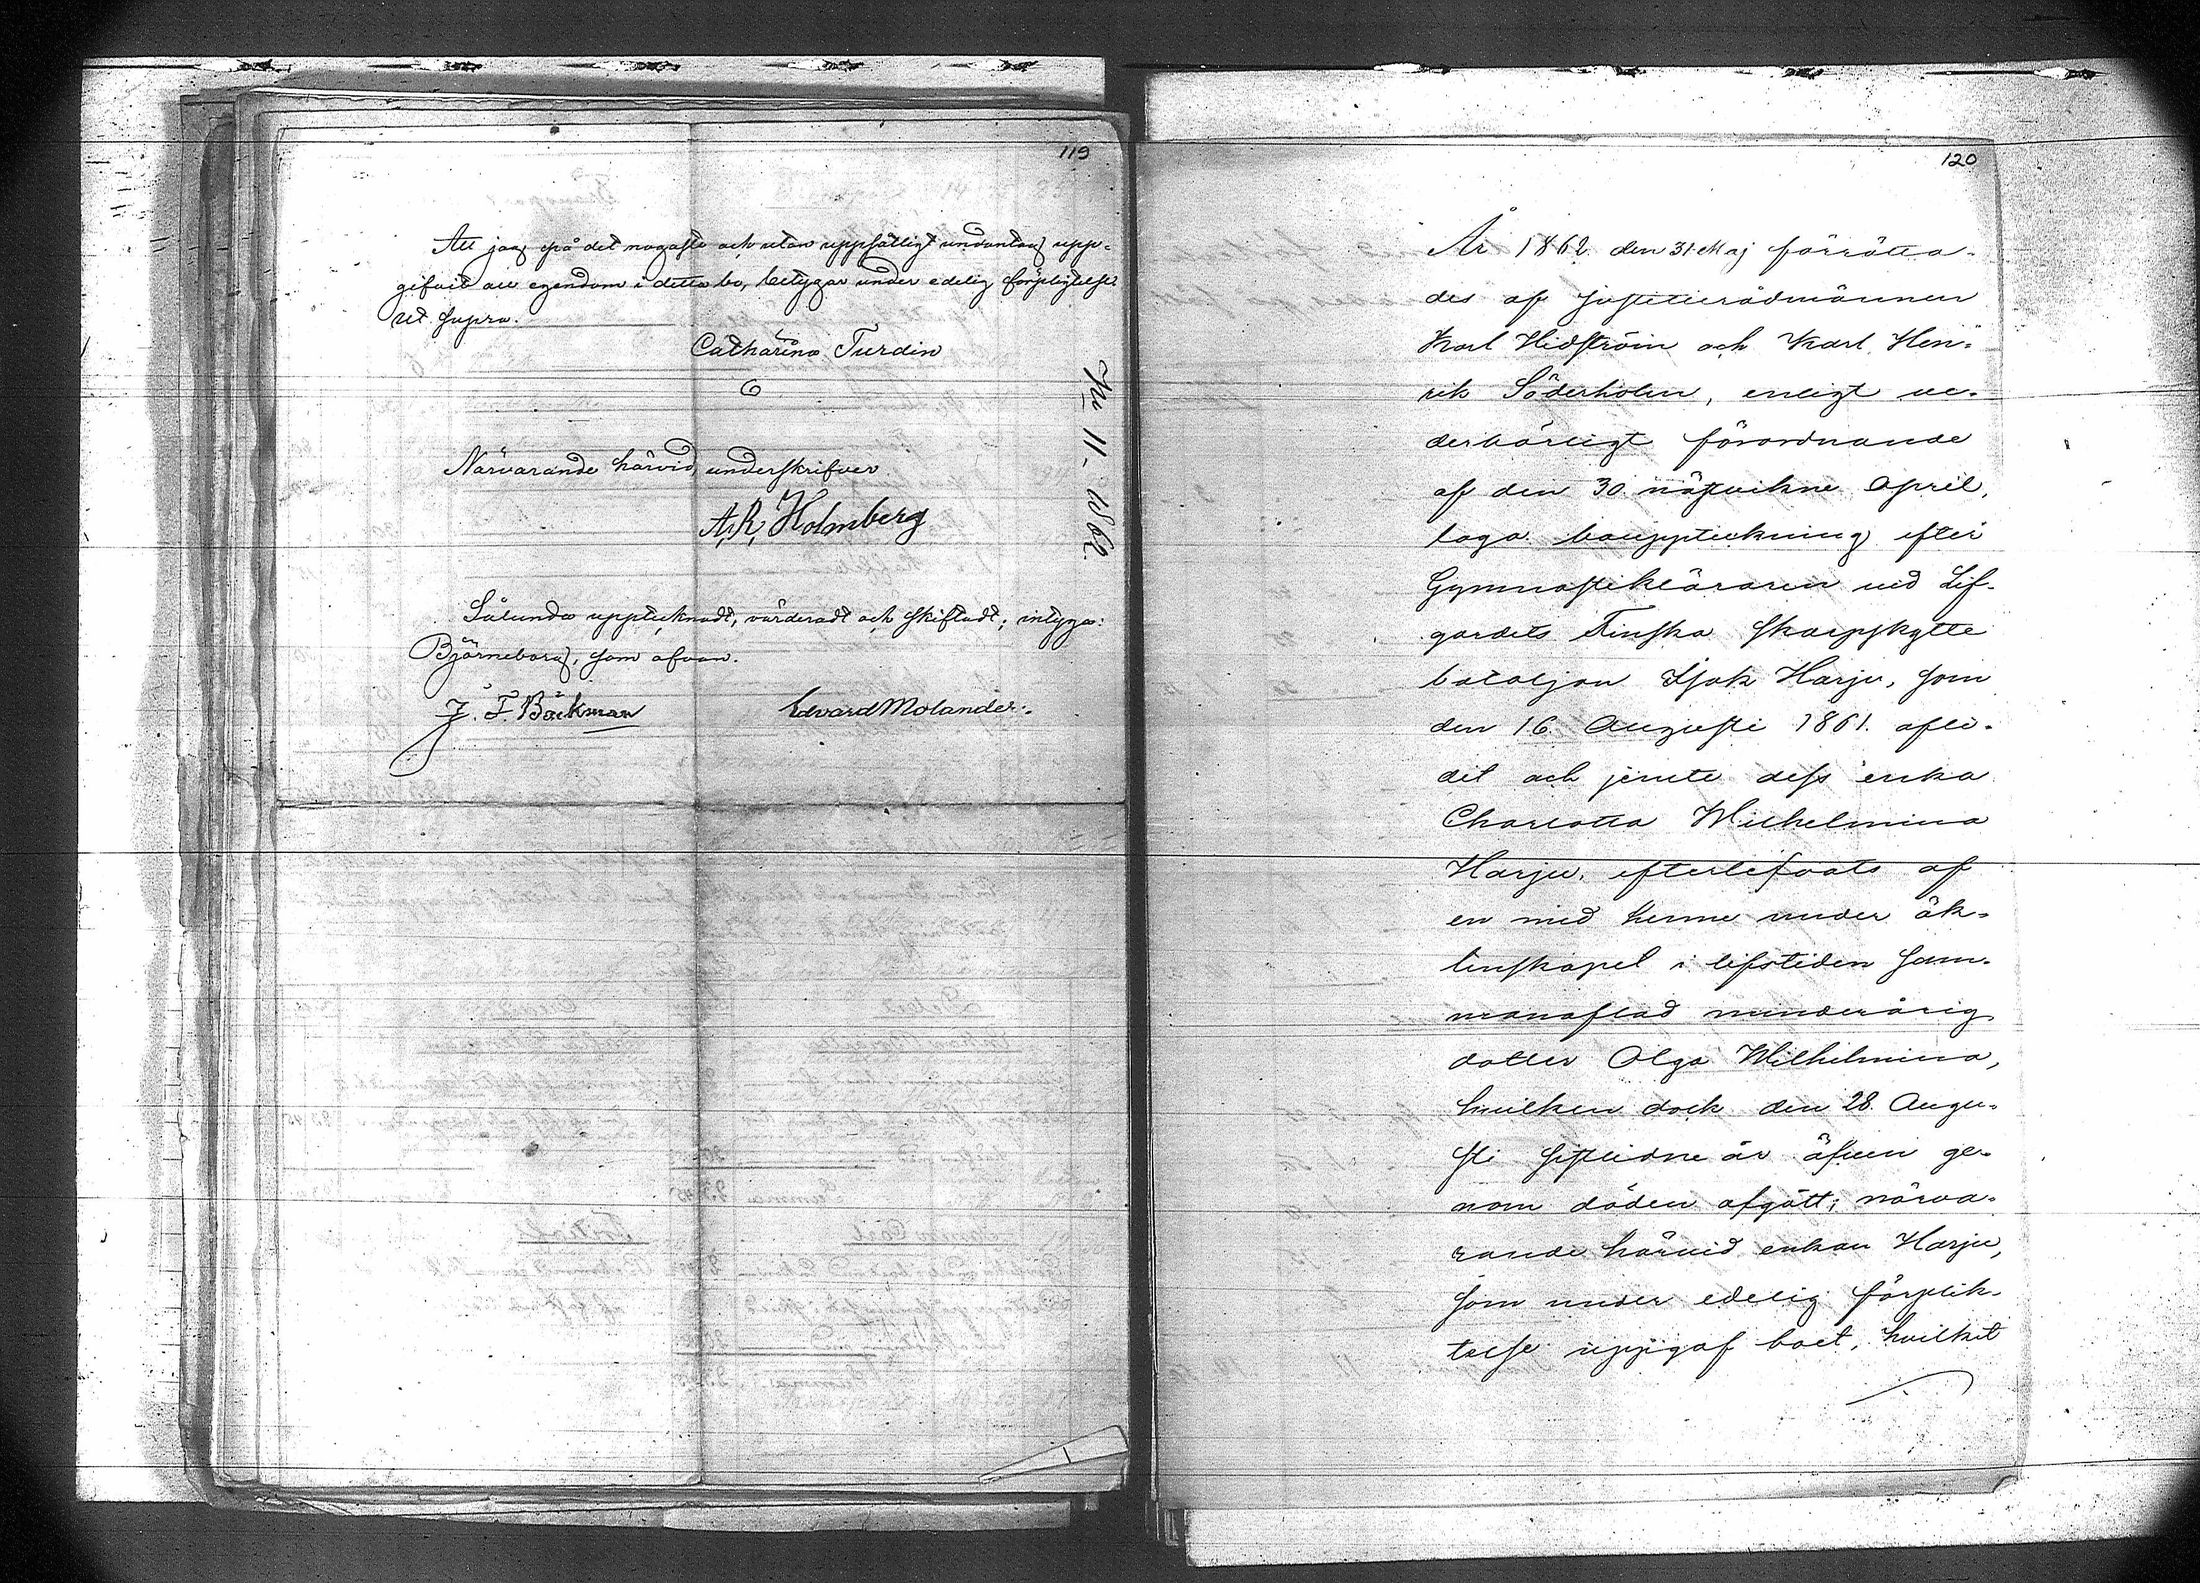 119
Att jag på det nogaste och utan uppsåtligt undantag upp-
gifvit all egendom i detta bo, betygar under edelig förpligtelse.
Ut supra.
Catharina Turdin
Närvarande härvid, underskrifver
A, R, Holmberg
No 11. 1862.
Sålunda upptecknadt, värderadt och skiftadt; intyga:
Björneborg, som ofvan.
J. F. Bäckman Edvard Molander.
120
År 1862 den 31 Maj förrätta-
des af Justitierådmännen
Karl Hidström och Karl Hen-
rik Söderholm, enligt ve-
derbörligt förordnande
af den 30 nästvikne April,
laga bouppteckning efter
Gymnastikläraren vid Lif-
gardets Finska Skarpskytte
bataljon Isak Harju, som
den 16 Augusti 1861. afli-
dit och jemte dess enka
Charlotta Wilhelmina
Harju, efterlefvats af
en med henne under äk-
tenskapet i lifstiden sam-
manaflad minderårig
dotter Olga Wilhelmina,
hvilken dock den 28 Augu-
sti sistlidne år äfven ge-
nom döden afgått; närva-
rande härvid enkan Harju,
som under edelig förplik-
telse uppgaf boet, hvilket